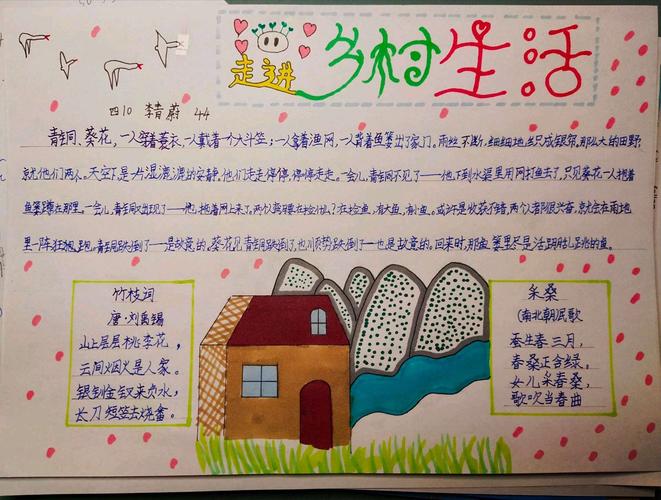 走进乡村生活
四10 李青蔚 44
青铜、葵花，一人穿着蓑衣，一人戴着一个大斗笠；一人拿着渔网，一人背着鱼篓出了家门。雨丝不断，细细地织成银帘，那么大的田野，
就他们两个人。天空下是一片湿漉漉的安静，他们走走停停，停停走走。一会儿，青铜不见了——他下到水渠里用网打鱼去了，只见葵花一人抱着
鱼篓蹲在那里。一会儿，青铜又出现了——他抱着网上来了。两个人弯腰在捡什么？在捡鱼，有大鱼，有小鱼。或许是收获不错，两个人都很兴奋，就会在雨地
里一阵狂跑。青铜跌倒了——是故意的。葵花见青铜跌倒了，也顺势跌倒了——也是故意的。回来时，那鱼篓里尽是活蹦乱跳的鱼。
竹枝词
唐·刘禹锡
山上层层桃李花，
云间烟火是人家。
银钏金钗来负水，
长刀短笠去烧畲。
采桑
(南北朝民歌
蚕生春三月，
春桑正含绿，
女儿采春桑，
歌吹当春曲